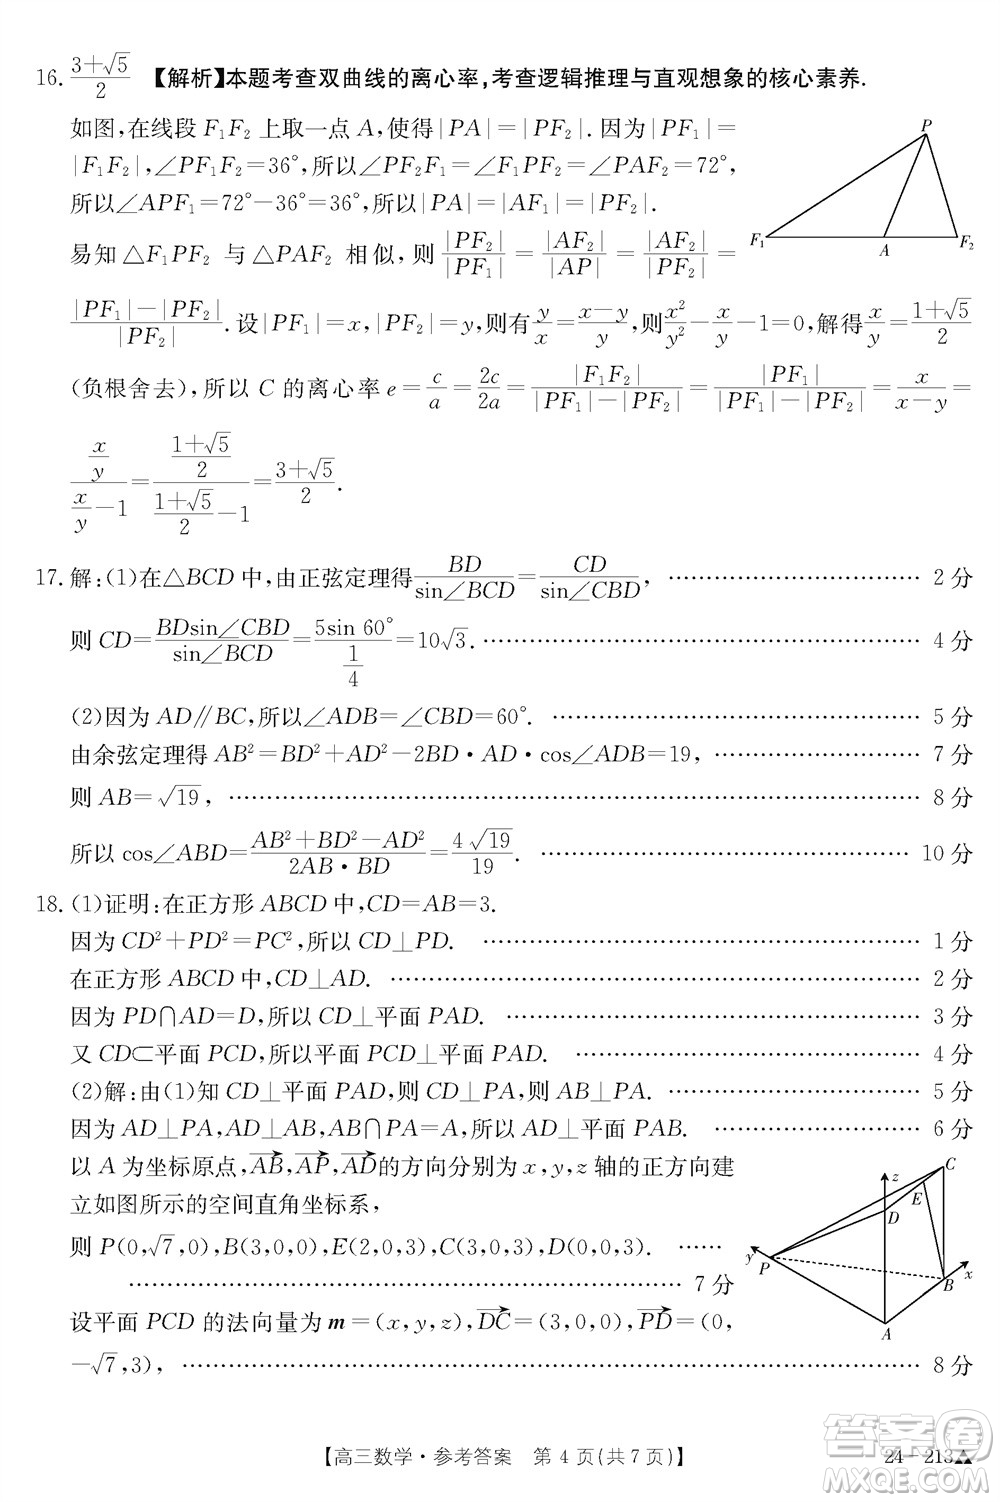 16. $\frac{3+\sqrt{5}}{2}$ 【解析】本题考查双曲线的离心率,考查逻辑推理与直观想象的核心素养.
如图,在线段 F₁F₂ 上取一点 A,使得|PA|=|PF₂|.因为|PF₁|=
|F₁F₂|,∠PF₁F₂=36°,所以∠PF₂F₁=∠PAF₂=72°,
所以∠APF₁=72°-36°=36°,所以|PA|=|AF₁|=|PF₂|.
易知 △F₁PF₂ 与 △PAF₂ 相似,则 $\frac{|PF_2|}{|PF_1|}=\frac{|AF_2|}{|AP|}=\frac{|AF_2|}{|PF_2|}=$
$\frac{|PF_1|-|PF_2|}{|PF_2|}$.设|PF₁|=x,|PF₂|=y,则有$\frac{y}{x}=\frac{x-y}{y}$,则$\frac{x^2}{y^2}-\frac{x}{y}-1=0$,解得$\frac{x}{y}=\frac{1+\sqrt{5}}{2}$
(负根舍去),所以 C 的离心率 $e=\frac{c}{a}=\frac{2c}{2a}=\frac{|F_1F_2|}{|PF_1|-|PF_2|}=\frac{|PF_1|}{|PF_1|-|PF_2|}=\frac{x}{x-y}=$
$\frac{\frac{x}{y}}{\frac{x}{y}-1}=\frac{\frac{1+\sqrt{5}}{2}}{\frac{1+\sqrt{5}}{2}-1}=\frac{3+\sqrt{5}}{2}$.
P
F₁
A
F₂
17. 解:(1)在△BCD 中,由正弦定理得$\frac{BD}{\sin∠BCD}=\frac{CD}{\sin∠CBD}$, …… 2 分
则 CD=$\frac{BD\sin∠CBD}{\sin∠BCD}=\frac{5\sin 60°}{\frac{1}{4}}=10\sqrt{3}$. …… 4 分
(2)因为 AD∥BC,所以∠ADB=∠CBD=60°. …… 5 分
由余弦定理得 AB²=BD²+AD²-2BD·AD·cos∠ADB=19, …… 7 分
则 AB=$\sqrt{19}$, …… 8 分
所以 cos∠ABD=$\frac{AB^2+BD^2-AD^2}{2AB·BD}=\frac{4\sqrt{19}}{19}$. …… 10 分
18. (1)证明:在正方形 ABCD 中,CD=AB=3.
因为 CD²+PD²=PC²,所以 CD⊥PD. …… 1 分
在正方形 ABCD 中,CD⊥AD. …… 2 分
因为 PD∩AD=D,所以 CD⊥平面 PAD. …… 3 分
又 CD⊂平面 PCD,所以平面 PCD⊥平面 PAD. …… 4 分
(2)解:由(1)知 CD⊥平面 PAD,则 CD⊥PA,则 AB⊥PA. …… 5 分
因为 AD⊥PA,AD⊥AB,AB∩PA=A,所以 AD⊥平面 PAB. …… 6 分
以 A 为坐标原点,$\overrightarrow{AB}$,$\overrightarrow{AP}$,$\overrightarrow{AD}$的方向分别为 x,y,z 轴的正方向建
立如图所示的空间直角坐标系,
则 P(0,$\sqrt{7}$,0),B(3,0,0),E(2,0,3),C(3,0,3),D(0,0,3). ……
…… 7 分
z
C
E
D
y
P
B
x
A
设平面 PCD 的法向量为 m=(x,y,z),$\overrightarrow{DC}$=(3,0,0),$\overrightarrow{PD}$=(0,
-$\sqrt{7}$,3), …… 8 分
【高三数学·参考答案 第 4 页(共 7 页)】
24-213▲
答案圈
MXQE.COM